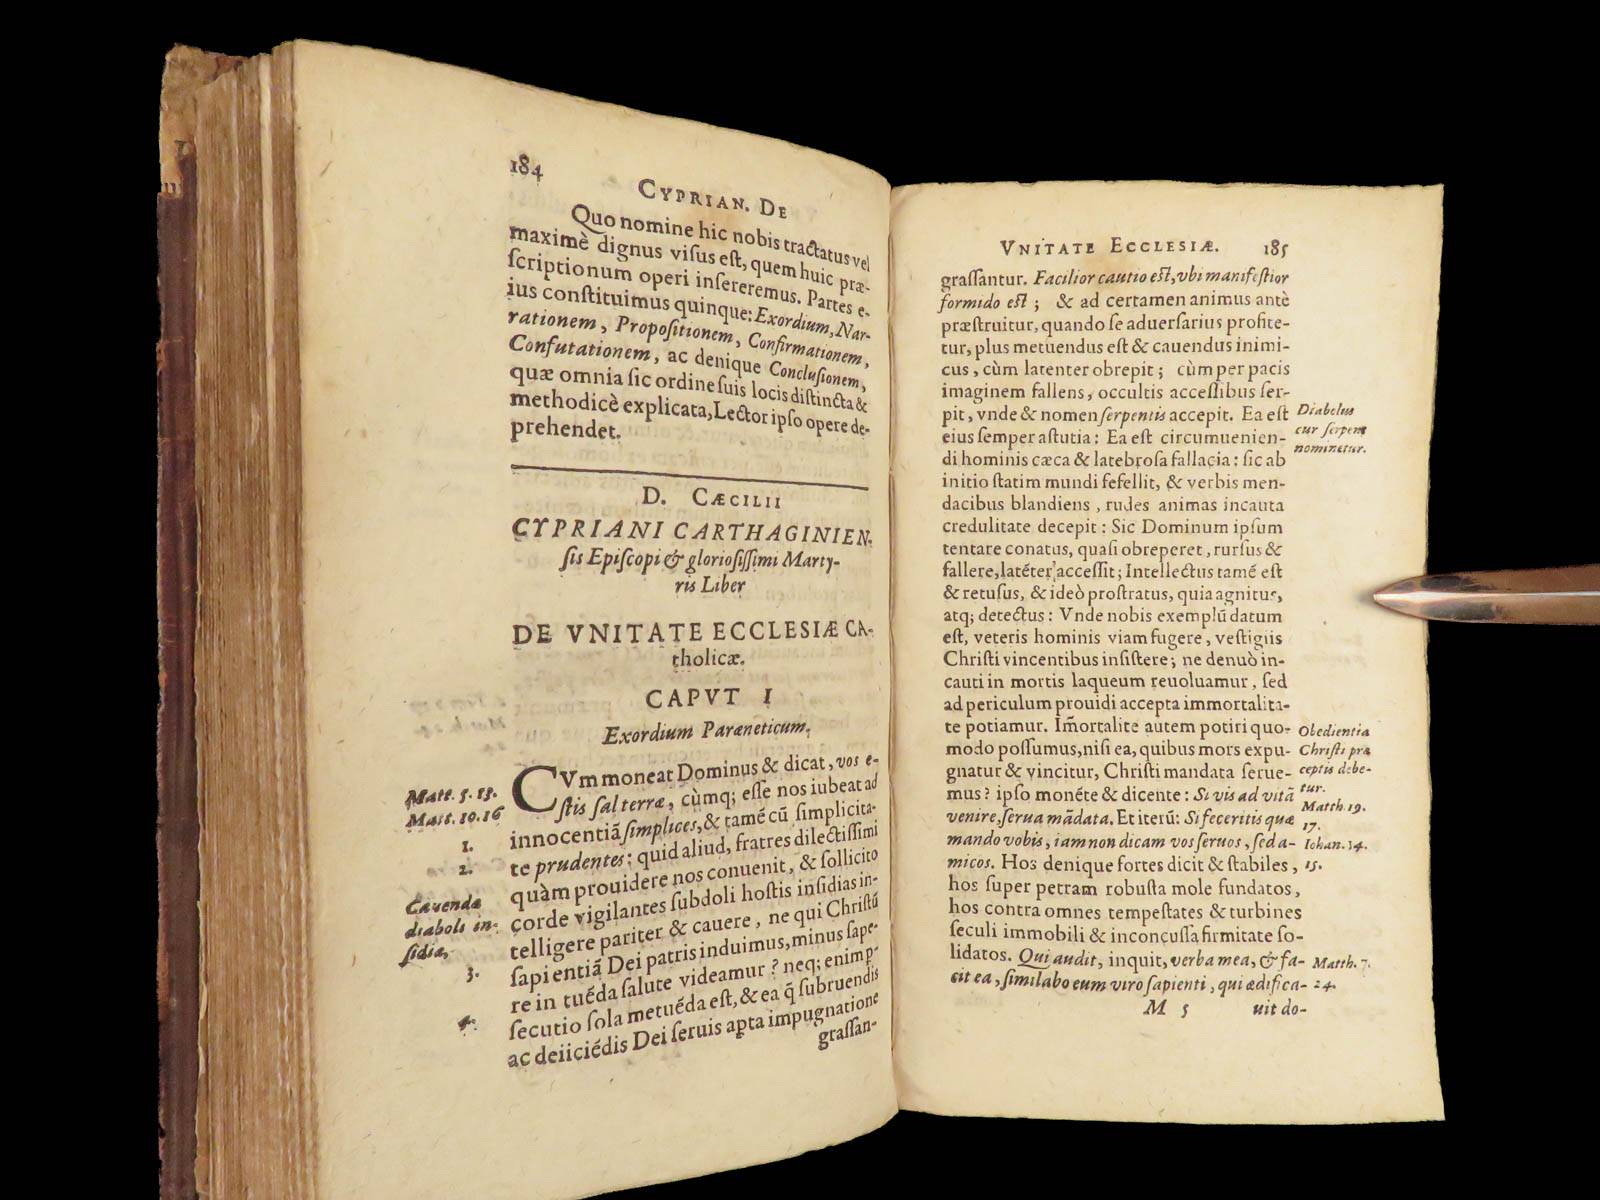 184
CYPRIAN. DE
Quo nomine hic nobis tractatus vel
maximè dignus visus est, quem huic præ-
scriptionum operi insereremus. Partes e-
ius constituimus quinque: Exordium, Nar-
rationem, Propositionem, Confirmationem,
Confutationem, ac denique Conclusionem,
quæ omnia sic ordine suis locis distincta &
methodicè explicata, Lector ipso opere de-
prehendet.
D. CÆCILII
CYPRIANI CARTHAGINIEN-
sis Episcopi & gloriosissimi Marty-
ris Liber
DE VNITATE ECCLESIÆ CA-
tholicæ.
CAPVT I
Exordium Paræneticum.
CVm moneat Dominus & dicat, vos e-
stis sal terræ, cùmq; esse nos iubeat ad
innocentiã simplices, & tamé cũ simplicita-
te prudentes: quid aliud, fratres dilectissimi
quàm prouidere nos conuenit, & sollicito
corde vigilantes subdoli hostis insidias in-
telligere pariter & cauere, ne qui Christũ
sapientiã Dei patris induimus, minus sape-
re in tuéda salute videamur? neq; enim p-
secutio sola metuéda est, & ea q̃ subruendis
ac deiiciédis Dei seruis apta impugnatione
grassan-
Matt. 5. 13.
Matt. 10. 16
1.
2.
Cauenda
diaboli in-
sidiæ,
3.
4.
VNITATE ECCLESIÆ.
185
grassantur. Facilior cautio est, vbi manifestior
formido est; & ad certamen animus antè
præstruitur, quando se aduersarius profite-
tur, plus metuendus est & cauendus inimi-
cus, cùm latenter obrepit; cùm per pacis
imaginem fallens, occultis accessibus ser-
pit, vnde & nomen serpentis accepit. Ea est
eius semper astutia: Ea est circumuenien-
di hominis cæca & latebrosa fallacia: sic ab
initio statim mundi fefellit, & verbis men-
dacibus blandiens, rudes animas incauta
credulitate decepit: Sic Dominum ipsum
tentare conatus, quasi obreperet, rursus &
fallere, latéter accessit; Intellectus tamé est
& retusus, & ideò prostratus, quia agnitus,
atq; detectus: Vnde nobis exemplũ datum
est, veteris hominis viam fugere, vestigiis
Christi vincentibus insistere; ne denuò in-
cauti in mortis laqueum reuoluamur, sed
ad periculum prouidi accepta immortalita-
te potiamur. Im̃ortalite autem potiri quo-
modo possumus, nisi ea, quibus mors expu-
gnatur & vincitur, Christi mandata serue-
mus? ipso monéte & dicente: Si vis ad vitã
venire, serua mãdata. Et iterũ: Si feceritis quæ
mando vobis, iam non dicam vos seruos, sed a-
micos. Hos denique fortes dicit & stabiles,
hos super petram robusta mole fundatos,
hos contra omnes tempestates & turbines
seculi immobili & inconcussa firmitate so-
lidatos. Qui audit, inquit, verba mea, & fa-
cit ea, similabo eum viro sapienti, qui ædifica-
M 5
uit do-
Diabolus
cur serpens
nominetur.
Obedientia
Christi præ
ceptis debe-
tur.
Matth. 19.
17.
Iohan. 14.
15.
Matth. 7.
24.